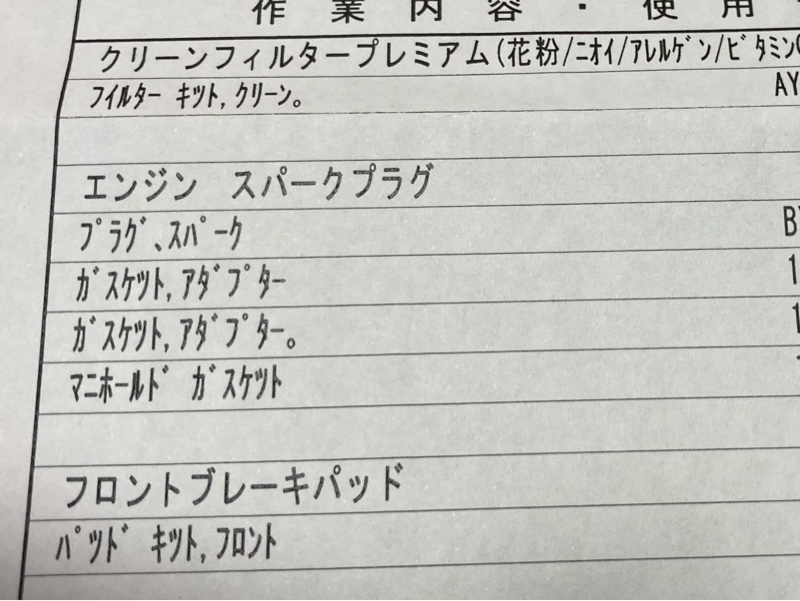 作業内容・使用
クリーンフィルタープレミアム(花粉/ﾆｵｲ/ｱﾚﾙｹﾞﾝ/ﾋﾞﾀﾐﾝ
ﾌｲﾙﾀｰ ｷﾂﾄ,ｸﾘｰﾝ｡ AY
エンジン スパークプラグ
ﾌﾟﾗｸﾞ､ｽﾊﾟｰｸ B
ｶﾞｽｹﾂﾄ,ｱﾀﾞﾌﾟﾀｰ 1
ｶﾞｽｹﾂﾄ,ｱﾀﾞﾌﾟﾀｰ｡ 1
ﾏﾆﾎｰﾙﾄﾞ ｶﾞｽｹﾂﾄ
フロントブレーキパッド
ﾊﾟﾂﾄﾞ ｷﾂﾄ,ﾌﾛﾝﾄ